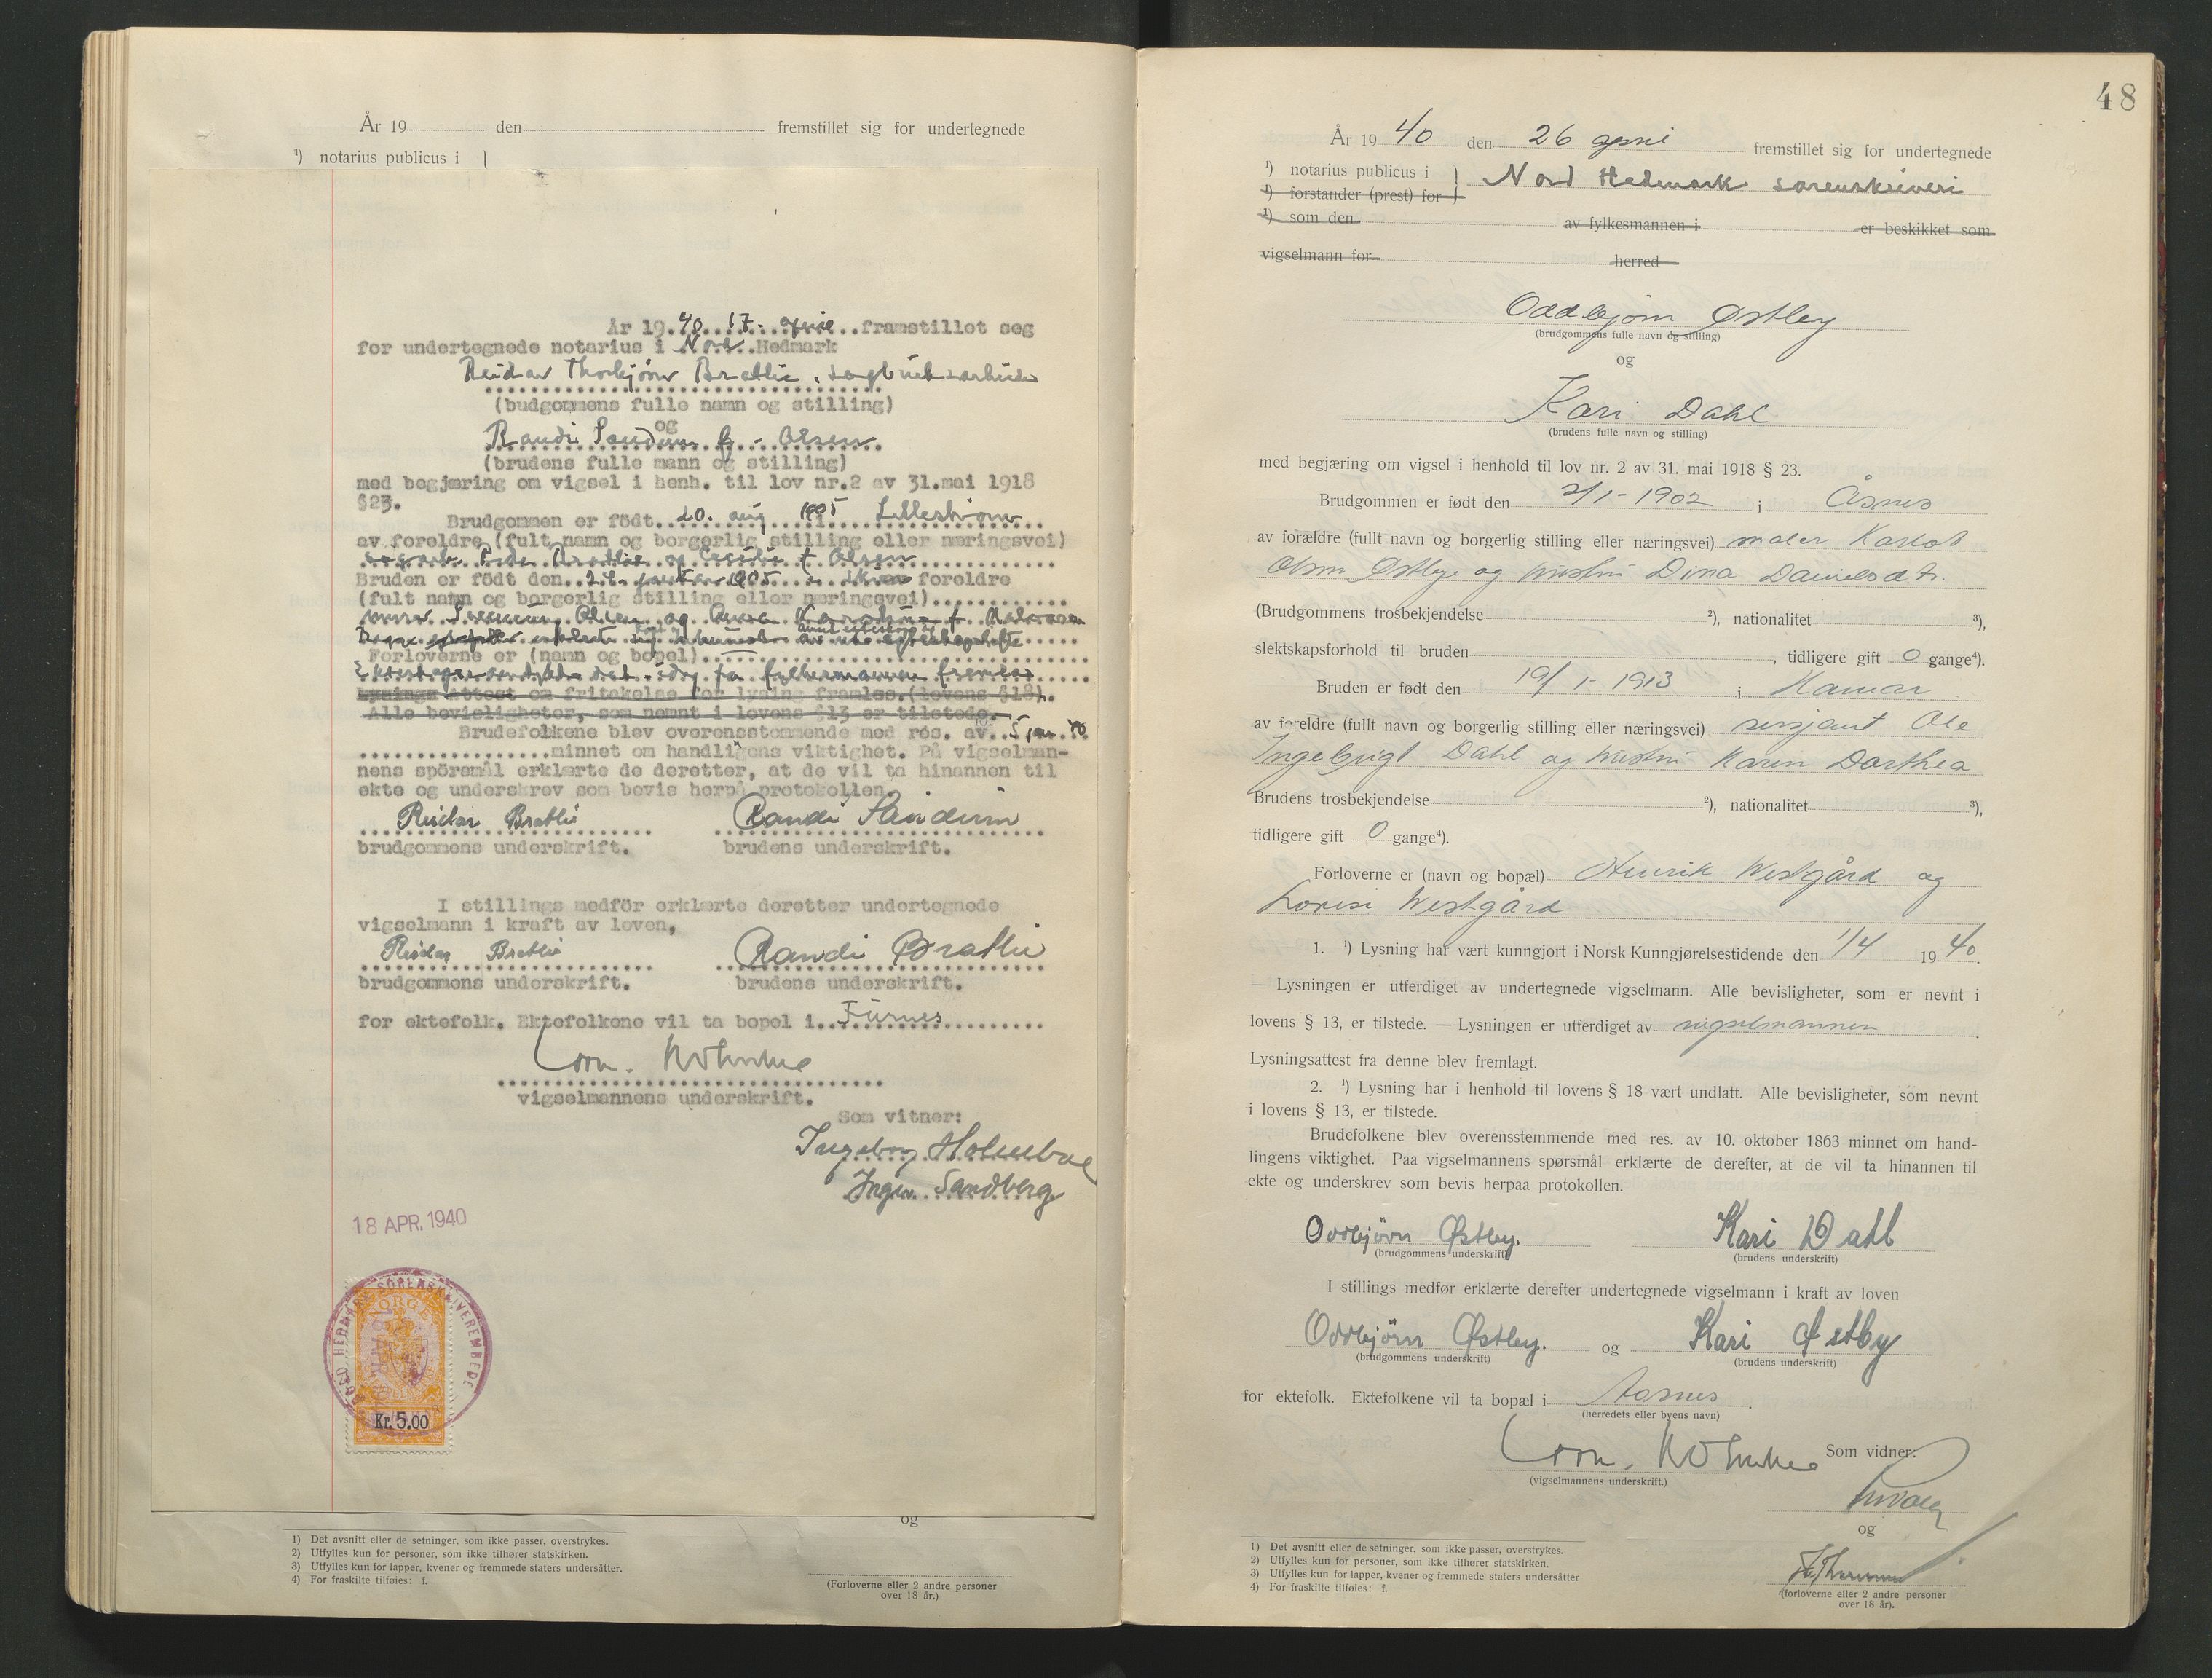 År 19 den fremstillet sig for undertegnede
¹) notarius publicus i
År 19.40 17. april framstillet seg
for undertegnede notarius i Nord Hedmark
Reidar Thorbjørn Bratlie, sagbruksarbeider
(budgommens fulle namn og stilling)
og
Randi Sandum f. Olsen
(brudens fulle mann og stilling)
med begjæring om vigsel i henh. til lov nr.2 av 31.mai 1918
§23.
Brudgommen er født 20. aug 1905 i Lillestrøm
av foreldre (fult namn og borgerlig stilling eller næringsvei)
Bratlie og Cecilie f. Olsen
Bruden er født den 1905 foreldre
(fult namn og borgerlig stilling eller næringsvei)
murer Olsen og Anna f. Halvorsen
Forloverne er (namn og bopel)
fra fylkesmannen
Lysings Attest om fritakelse for lysing framles.(lovens §18).
Alle bevisligheter, som nemnt i lovens §13 er tilstede.
Brudefolkene blev overensstemmende med res. av 5 jan. 40
minnet om handligens viktighet. På vigselman-
nens spörsmål erklærte de deretter, at de vil ta hinannen til
ekte og underskrev som bevis herpå protokollen.
Reidar Bratlie Randi Sandum
brudgommens underskrift. brudens underskrift.
I stillings medför erklærte deretter undertegnede
vigselmann i kraft av loven,
Reidar Bratlie Randi Bratlie
brudgommens underskrift. brudens underskrift.
for ektefolk. Ektefolkene vil ta bopel i Furnes
Corn. Holmboe
vigselmannens underskrift.
Som vitner:
Ingeborg Holmboe
Inga Sandberg
18 APR. 1940
NORD HEDMARK SORENSKRIVEREMBEDE
NORGE
Kr. 5.00
og
1) Det avsnitt eller de setninger, som ikke passer, overstrykes.
2) Utfylles kun for personer, som ikke tilhører statskirken.
3) Utfylles kun for lapper, kvener og fremmede staters undersåtter.
4) For fraskilte tilføies: f.
(Forloverne eller 2 andre personer
over 18 år.)
48
År 19 40 den 26 april fremstillet sig for undertegnede
¹) notarius publicus i Nord Hedmark sorenskriveri
¹) forstander (prest) for
¹) som den av fylkesmannen i er beskikket som
vigselmann for herred
Oddbjørn Østby
(brudgommens fulle navn og stilling)
og
Kari Dahl
(brudens fulle navn og stilling)
med begjæring om vigsel i henhold til lov nr. 2 av 31. mai 1918 § 23.
Brudgommen er født den 2/1-1902 i Åsnes
av forældre (fullt navn og borgerlig stilling eller næringsvei) maler Karlot
Olsen Østbye og hustru Dina Danielsdtr.
(Brudgommens trosbekjendelse ²), nationalitet ³),
slektskapsforhold til bruden , tidligere gift 0 gange⁴).
Bruden er født den 19/1-1913 i Hamar
av foreldre (fullt navn og borgerlig stilling eller næringsvei) sersjant Ole
Ingebrigt Dahl og hustru Karen Dorthea
Brudens trosbekjendelse ²), nationalitet ³),
tidligere gift 0 gange⁴).
Forloverne er (navn og bopæl) Henrik Westgård og
Lovise Westgård
1. ¹) Lysning har vært kunngjort i Norsk Kunngjørelsestidende den 1/4 19 40.
— Lysningen er utferdiget av undertegnede vigselmann. Alle bevisligheter, som er nevnt i
lovens § 13, er tilstede. — Lysningen er utferdiget av vigselmannen.
Lysningsattest fra denne blev fremlagt.
2. ¹) Lysning har i henhold til lovens § 18 vært undlatt. Alle bevisligheter, som nevnt
i lovens § 13, er tilstede.
Brudefolkene blev overensstemmende med res. av 10. oktober 1863 minnet om hand-
lingens viktighet. Paa vigselmannens spørsmål erklærte de derefter, at de vil ta hinannen til
ekte og underskrev som bevis herpaa protokollen.
Oddbjörn Østby. Kari Dahl
(brudgommens underskrift) (brudens underskrift)
I stillings medfør erklærte derefter undertegnede vigselmann i kraft av loven
Oddbjörn Østby. og Kari Østby
(brudgommens underskrift) (brudens underskrift)
for ektefolk. Ektefolkene vil ta bopæl i Aasnes.
(herredets eller byens navn)
Corn. Holmboe Som vidner:
(vigselmannens underskrift.)
og
1) Det avsnitt eller de setninger, som ikke passer, overstrykes.
2) Utfylles kun for personer, som ikke tilhører statskirken.
3) Utfylles kun for lapper, kvener og fremmede staters undersåtter
4) For fraskilte tilføies: f.
(forloverne eller 2 andre personer
over 18 år).